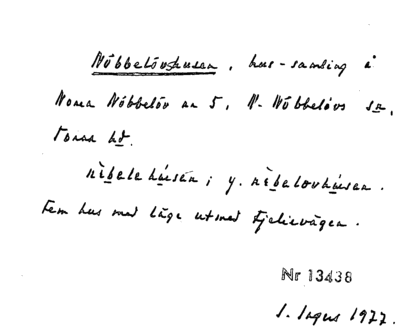 Nöbbelövshusen, hus-samling i
Norra Nöbbelöv nr 5, N. Nöbbelövs sn,
Torna hd.
nèbelehúsen; y. nèbelovhúsen.
Fem hus med läge utmed Fjelievägen.
Nr 13438
S. Ingers 1977.